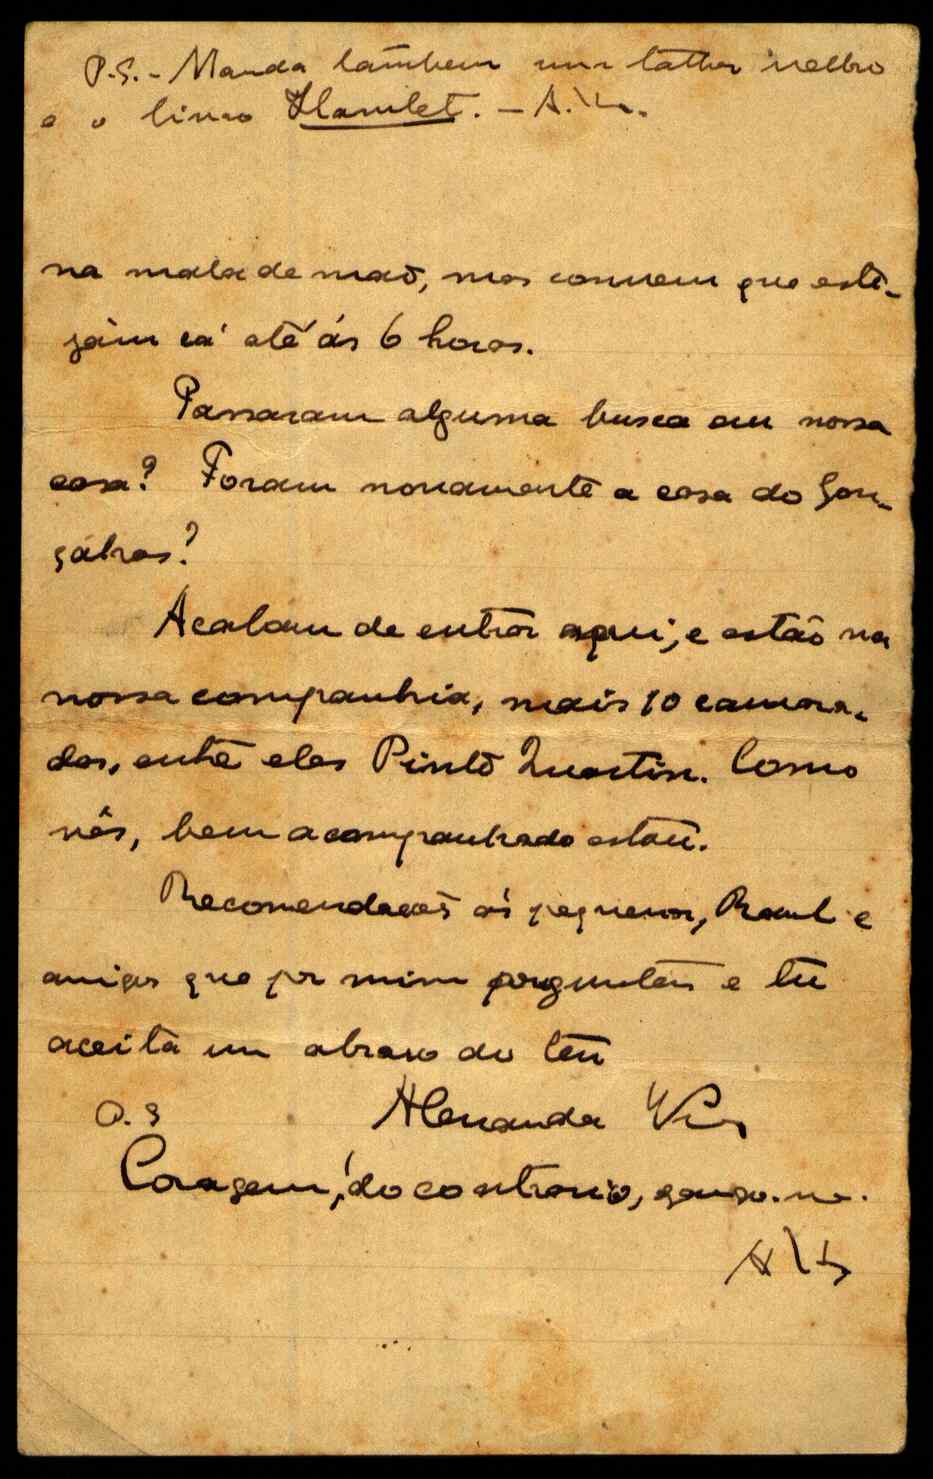 P.S. - Manda tambem um talher velho
e o livro Hamlet. - A. V.
na mala de maõ, mas convem que este-
jàm cá até ás 6 horas.
Passaram alguma busca em nossa
casa? Foram novamente a casa do Gon-
çalves?
Acabam de entrar aqui, e estão na
nossa companhia, mais 10 camara-
das, entre eles Pinto Quartin. Como
vês, bem acompanhado estou.
Recomendações ás pequenas, Raul e
amigos que por mim perguntem e tu
aceita um abraço do teu
P. S Alexandre V
Coragem, do contrario, zango-me.
A V